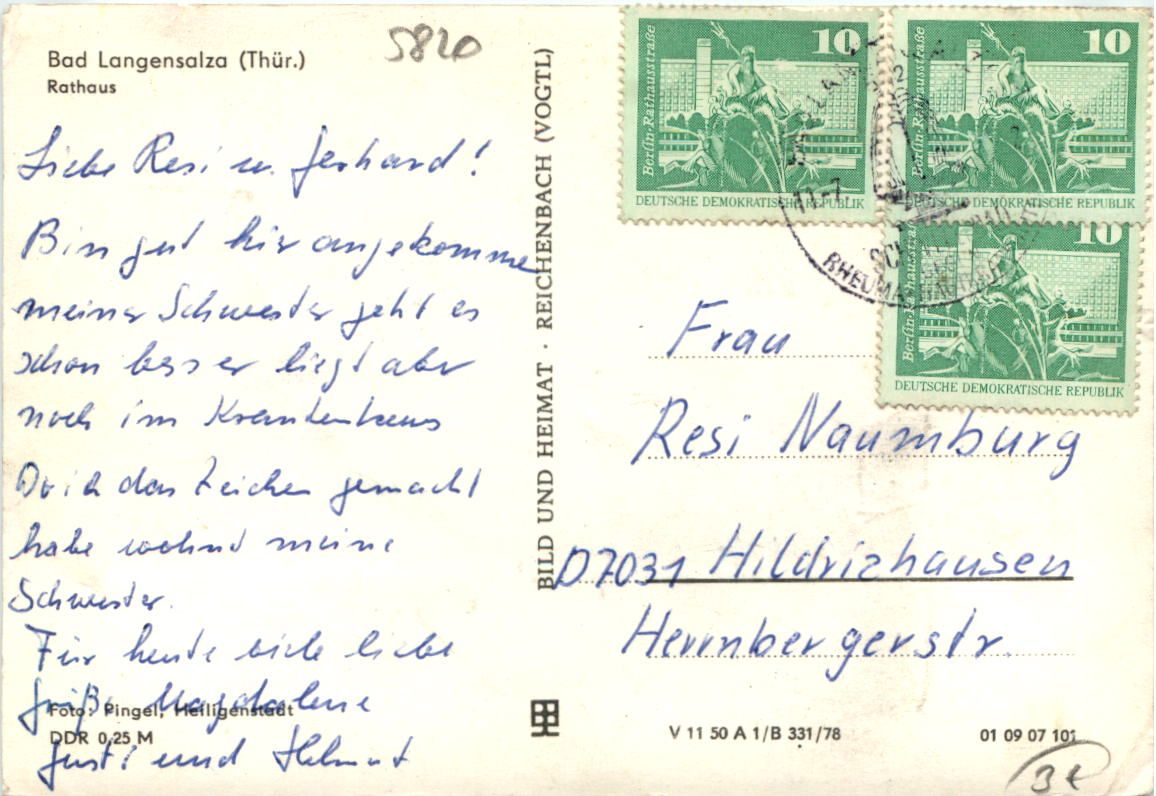 Bad Langensalza (Thür.)
Rathaus
5820
Liebe Resi u. Gerhard!
Bin gut hir angekomme
meiner Schwester geht es
schon besser liegt aber
noch im Krankenhaus
Wo ich das Zeichen gemacht
habe wohnt meine
Schwester.
Für heute viele liebe
Grüße Magdalene
Gusti und Helmut
Foto: Pingel, Heiligenstadt
DDR 0,25 M
BILD UND HEIMAT · REICHENBACH (VOGTL)
Berlin-Rathausstraße
10
DEUTSCHE DEMOKRATISCHE REPUBLIK
Berlin-Rathausstraße
10
DEUTSCHE DEMOKRATISCHE REPUBLIK
Berlin-Rathausstraße
10
DEUTSCHE DEMOKRATISCHE REPUBLIK
11.-7.
Frau
Resi Naumburg
D7031 Hildrizhausen
Herrnbergerstr.
V 11 50 A 1/B 331/78
01 09 07 101
3€